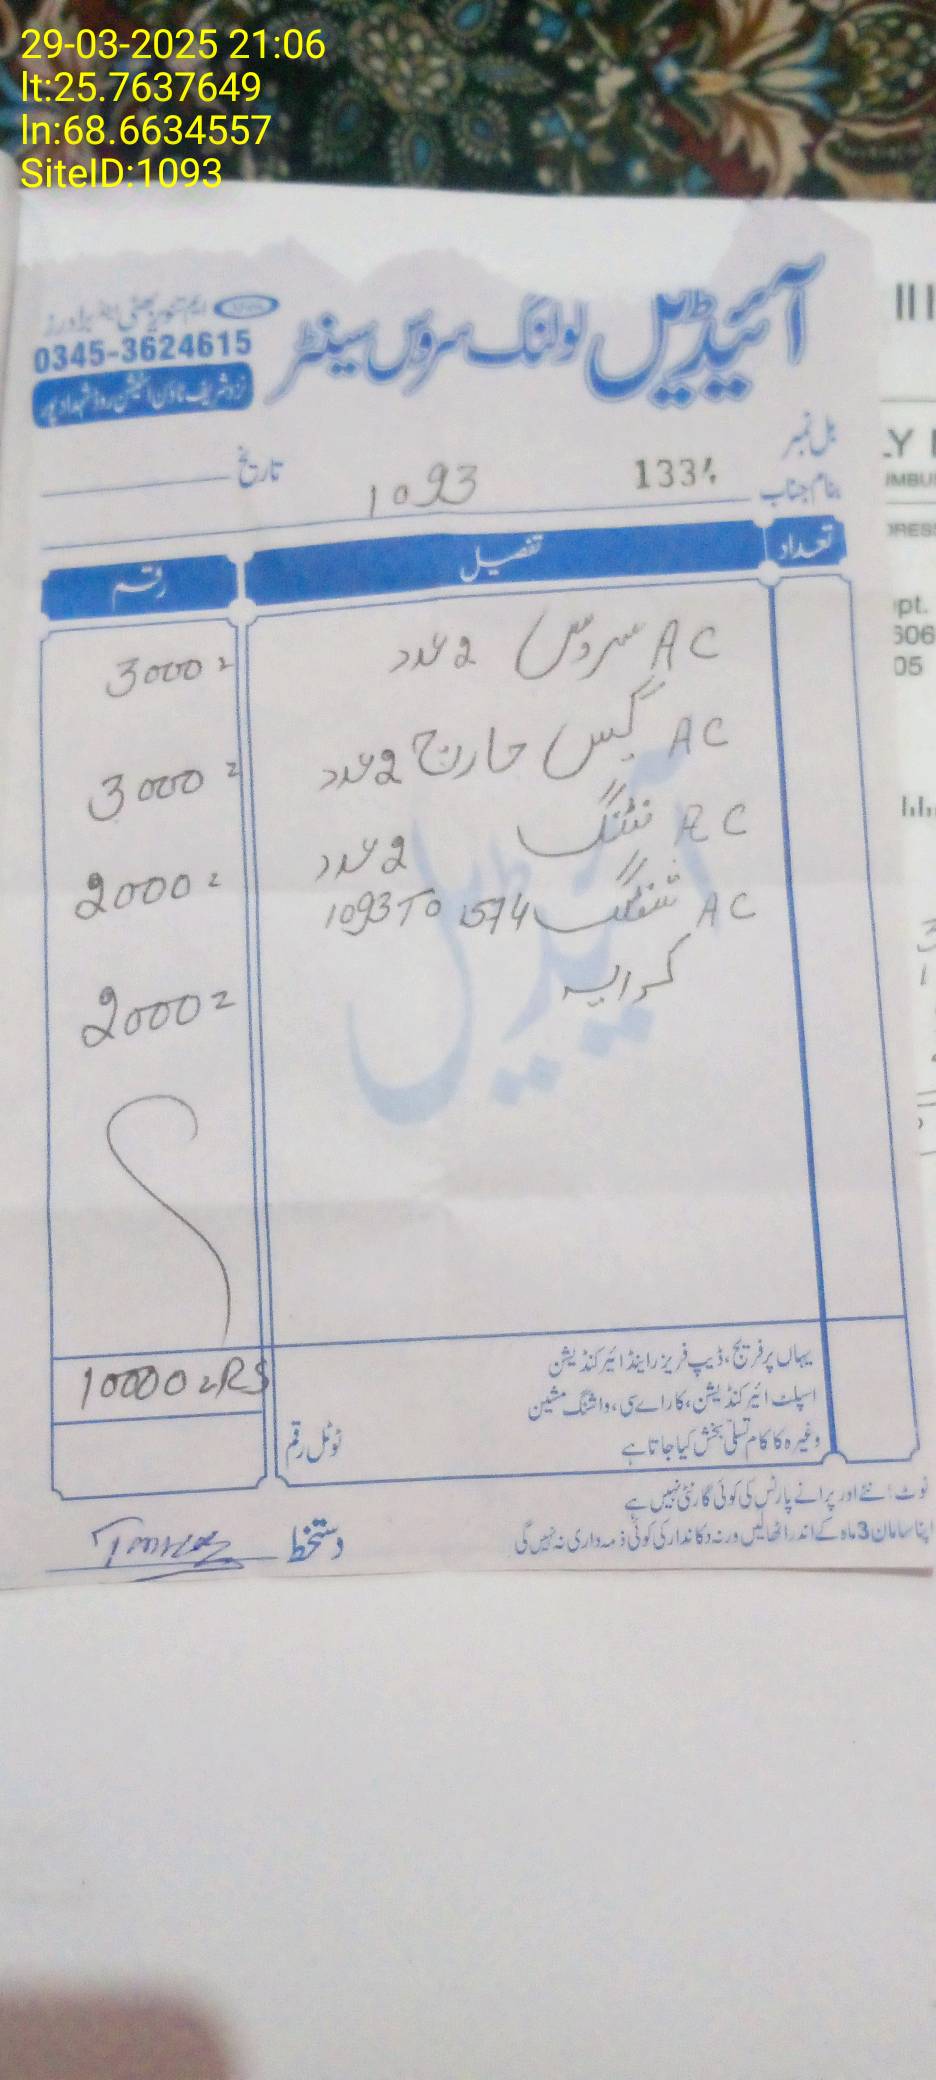 29-03-2025 21:06
lt:25.7637649
ln:68.6634557
SiteID:1093
آئیڈیل کولنگ سروس سینٹر
0345-3624615
نزد شریف ٹاؤن اسٹیشن روڈ شہدادپور
بل نمبر
1334
تاریخ
بنام جناب
1093
تعداد تفصیل رقم
AC سروس 2 عدد 3000=
AC گیس چارج 2 عدد 3000=
AC فٹنگ 2 عدد 2000=
AC شفٹنگ 1093 To 1574
کرایہ 2000=
آئیڈیل
یہاں پر فریج، ڈیپ فریزر اینڈ ائیر کنڈیشن
اسپلٹ ائیر کنڈیشن، کار اے سی، واشنگ مشین
وغیرہ کا کام تسلی بخش کیا جاتا ہے
ٹوٹل رقم
10000=RS
نوٹ: نئے اور پرانے پارٹس کی کوئی گارنٹی نہیں ہے
اپنا سامان 3 ماہ کے اندر اٹھالیں ورنہ دکاندار کی کوئی ذمہ داری نہ ہیں گی
دستخط